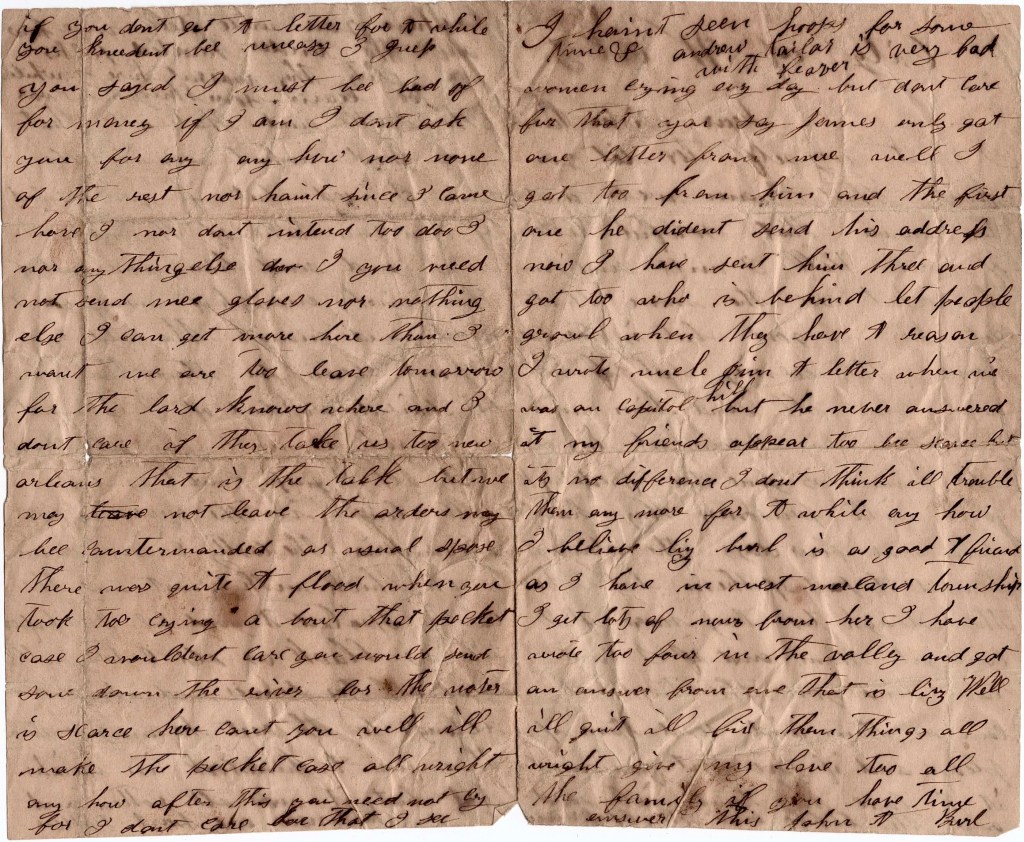 if you dont get A letter for A while
you kneedent bee uneasy I guess
you sayed I must bee bad of
for money if I am I dont ask
you for any any how nor none
of the rest nor haint since I came
hare I nor dont intend too doo I
nor any thing else I you need
not send mee gloves nor nothing
else I can get more here than I
want we are too leave tomorrow
for the lord knows where and I
dont care if they take us too new
orleans that is the talk but we
may leave not leave the orders may
bee countermanded as usual spose
there was quite A flood when you
took too crying a bout that pocket
case I wouldent care you would send
some down the river for the water
is scarce here cant you well ill
make the pocket case all wright
any how after this you need not cry
for I dont care one that I see
I haint seen hoops for some
time & andrew tailor is very bad
with feaver
women crying evry day but dont care
for that you say James only got
one letter from mee well I
got too from him and the first
one he dident send his address
now I have sent him three and
got too who is behind let people
growl when they have A reason
I wrote uncle Jim A letter when we
was on capitol hill but he never answered
it my friends appear too bee scarce but
its no difference I dont think ill trouble
them any more for A while any how
I believe liz burl is as good A friend
as I have in west morland township
I get lots of news from her I have
wrote too four in the valley and got
an answer from one that is liz Well
ill quit ill fix them things all
wright give my love too all
the family if you have time
answer this John A Burl